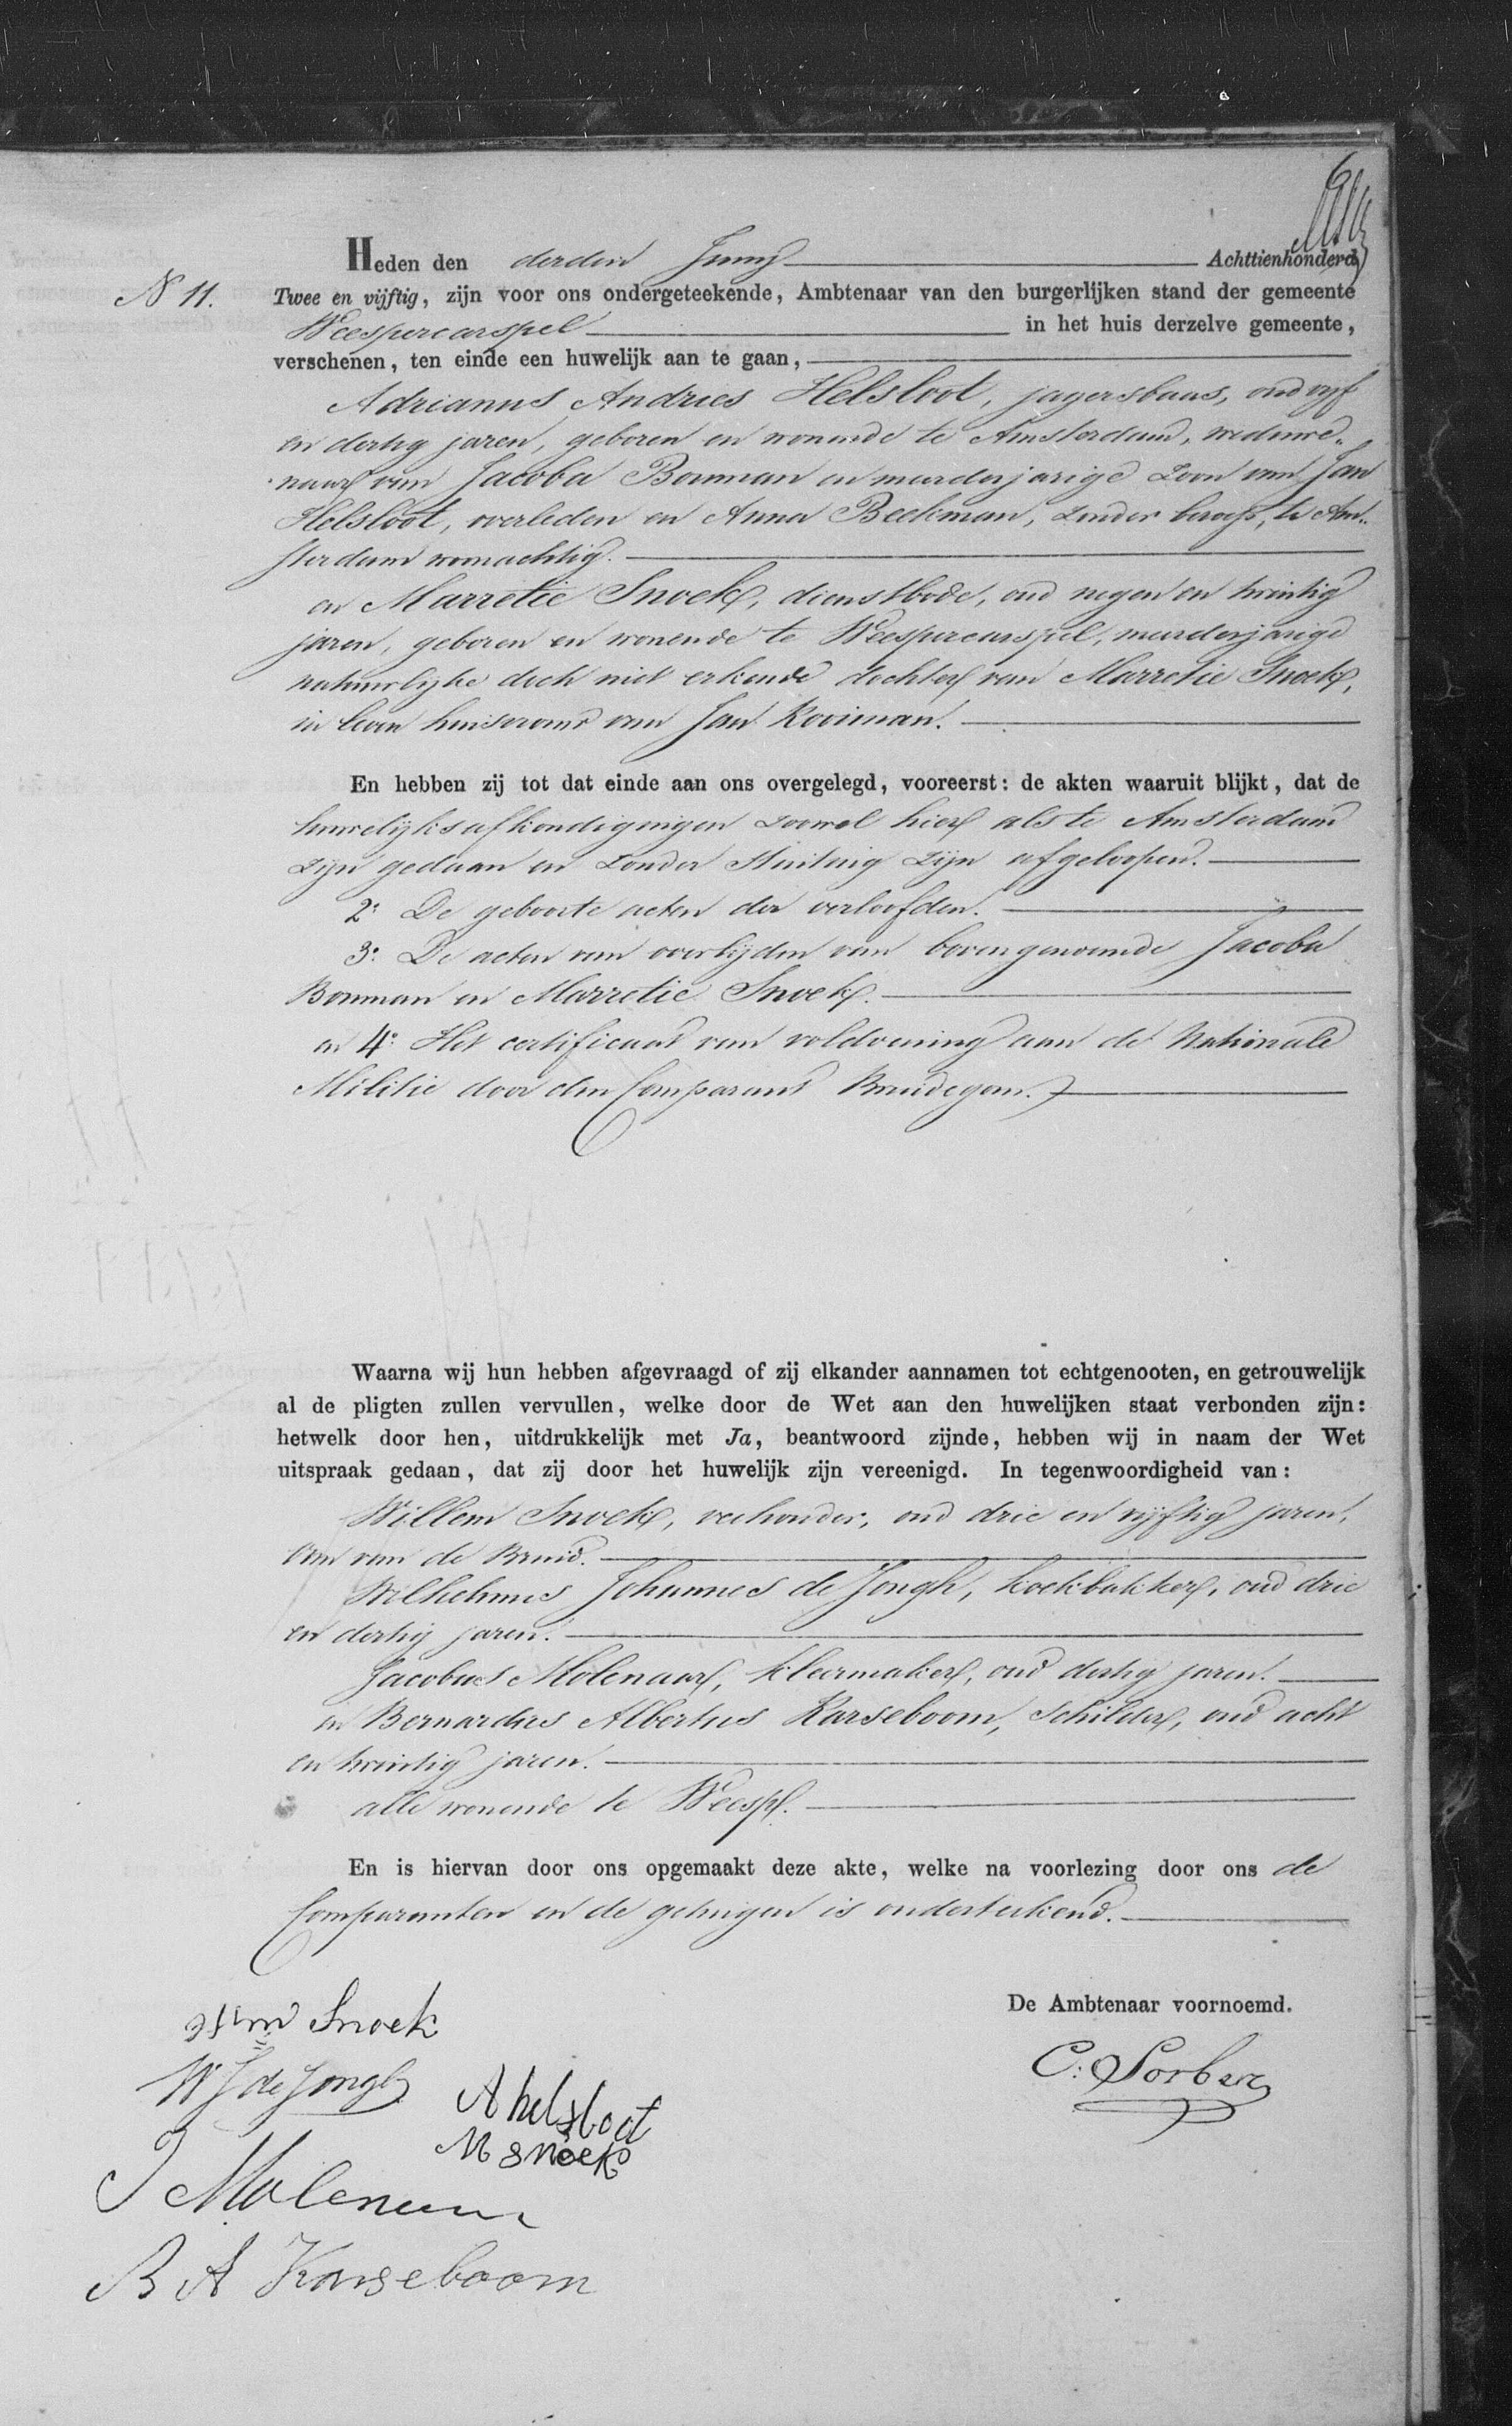 Heden den derden Junij Achttienhonderd
N 11.
Twee en vijftig, zijn voor ons ondergeteekende, Ambtenaar van den burgerlijken stand der gemeente
Weespercarspel in het huis derzelve gemeente,
verschenen, ten einde een huwelijk aan te gaan,
Adrianus Andries Helsloot, jagersbaas, oud vyf
en dertig jaren, geboren en wonende te Amsterdam, weduwe„
naar van Jacoba Bouman en meerderjarige zoon van Jan
Helsloot, overleden en Anna Beekman, zonder beroep, te Am„
sterdam woonachtig.
en Marretie Snoek, dienstbode, oud negen en twintig
jaren, geboren en wonende te Weespercarspel, meerderjarige
natuurlyke doch niet erkende dochter van Marretie Snoek,
in leven huisvrouw van Jan Kooiman.
En hebben zij tot dat einde aan ons overgelegd, vooreerst: de akten waaruit blijkt, dat de
huwelijksafkondigingen zoowel hier als te Amsterdam
zijn gedaan en zonder stuiting zijn afgeloopen.
2º De geboorte acten der verloofden.
3º De acten van overlijden van bovengenoemde Jacoba
Bouman en Marretie Snoek.
en 4º Het certificaat van voldoening aan de Nationale
Militie door den Comparant Bruidegom.
Waarna wij hun hebben afgevraagd of zij elkander aannamen tot echtgenooten, en getrouwelijk
al de pligten zullen vervullen, welke door de Wet aan den huwelijken staat verbonden zijn:
hetwelk door hen, uitdrukkelijk met Ja, beantwoord zijnde, hebben wij in naam der Wet
uitspraak gedaan, dat zij door het huwelijk zijn vereenigd. In tegenwoordigheid van:
Willem Snoek, veehouder, oud drie en vijftig jaren,
Oom van de Bruid.
Wilhelmus Johannes de Jongh, koekbakker, oud drie
en dertig jaren.
Jacobus Molenaar, kleermaker, oud dertig jaren.
en Bernardus Albertus Karseboom, Schilder, oud acht
en twintig jaren.
alle wonende te Weesp.
En is hiervan door ons opgemaakt deze akte, welke na voorlezing door ons de
Comparanten en de getuigen is onderteekend.
De Ambtenaar voornoemd.
Wm Snoek
C: Sorber
WJ de Jongh
A helsloot
M snoek
J Molenaar
B A Karseboom